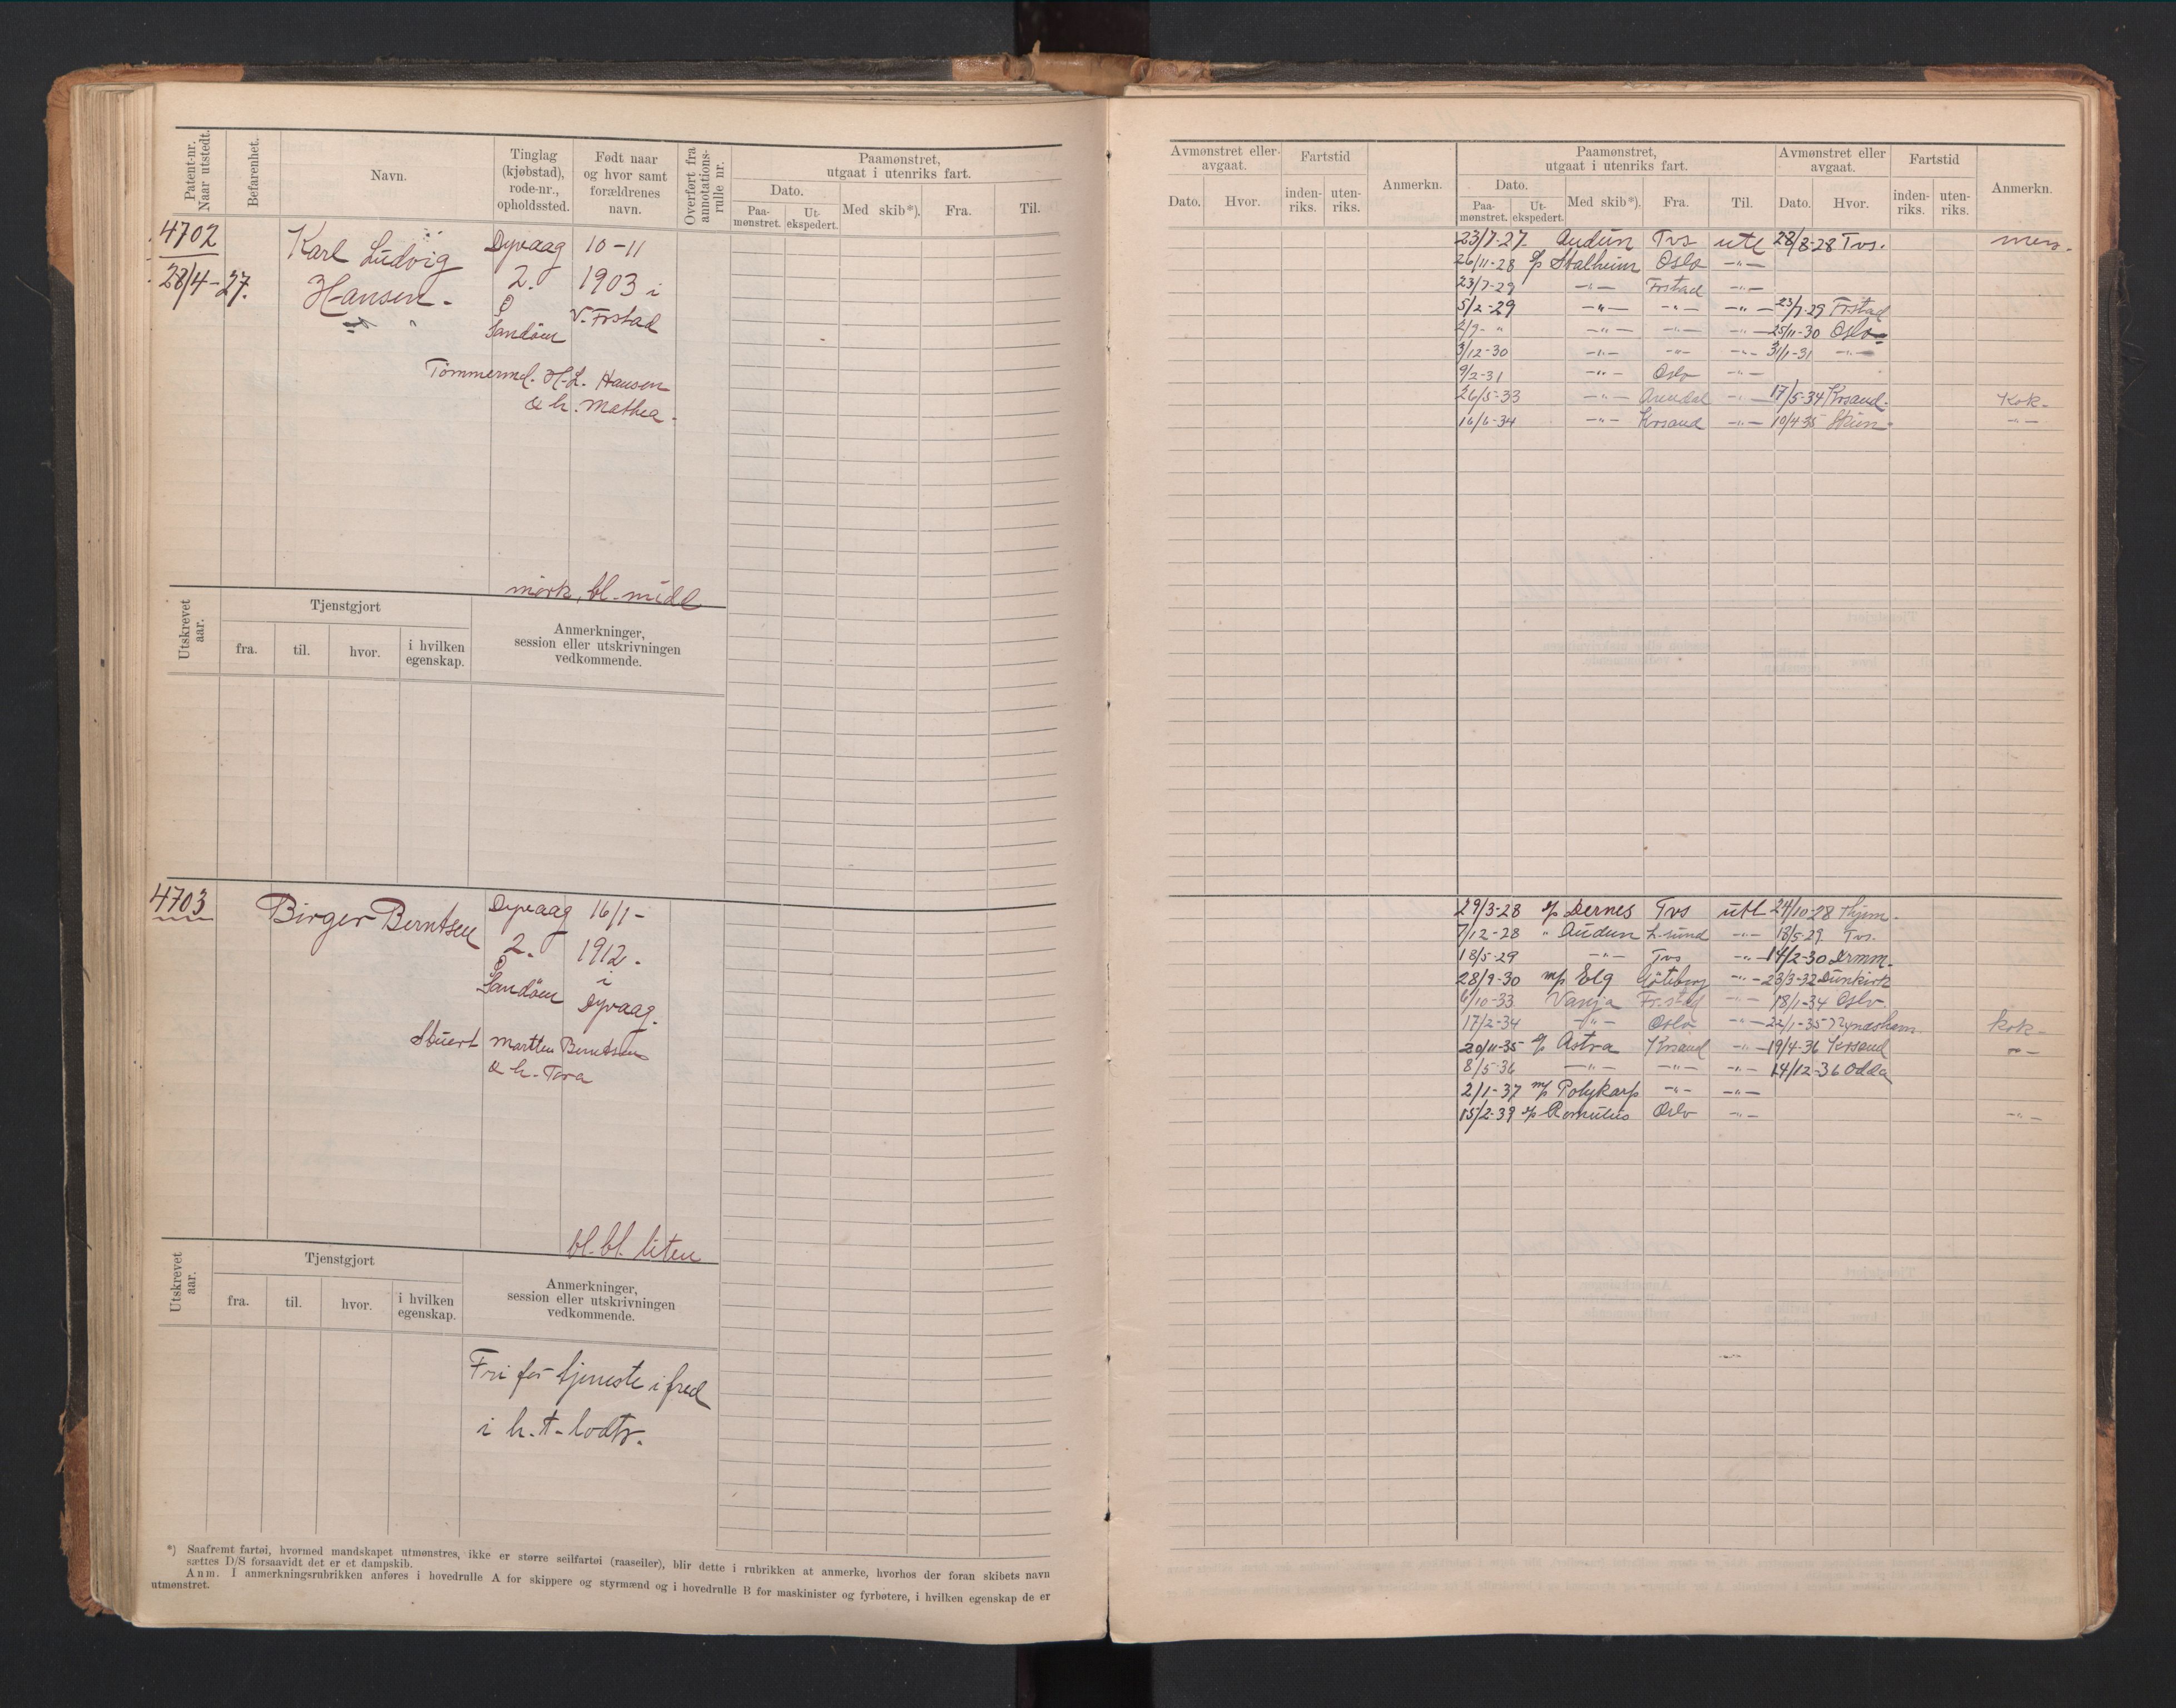 Patent-nr. Naar utstedt.
Befarenhet.
Navn.
Tinglag (kjøbstad), rode-nr., opholdssted.
Født naar og hvor samt forældrenes navn.
Overført fra annotations-rulle nr.
Paamønstret, utgaat i utenriks fart.
Dato.
Paa-mønstret.
Ut-ekspedert.
Med skib*).
Fra.
Til.
4702
28/4-27.
Karl Ludvig
Hansen.
Dyvaag
2.
Sandöen
10-11
1903 i
V. Frstad
Tömmermd. H. L. Hansen
& h. Mathea.
mörk, bl. midl
Utskrevet aar.
Tjenstgjort
fra.
til.
hvor.
i hvilken egenskap.
Anmerkninger, session eller utskrivningen vedkommende.
4703
Birger Berntsen
Dyvaag
2.
Sandöen
16/1-
1912.
i
Dyvaag.
Stuert Berntsen
& h. Tora
bl. bl. liten
Utskrevet aar.
Tjenstgjort
fra.
til.
hvor.
i hvilken egenskap.
Anmerkninger, session eller utskrivningen vedkommende.
Fri for tjeneste i fred
i h. t. lodtr.
*) Saafremt fartøi, hvormed mandskapet utmønstres, ikke er større seilfartøi (raaseiler), blir dette i rubrikken at anmerke, hvorhos der foran skibets navn
sættes D/S forsaavidt det er et dampskib.
Anm. I anmerkningsrubrikken anføres i hovedrulle A for skippere og styrmænd og i hovedrulle B for maskinister og fyrbøtere, i hvilken egenskap de er
utmønstret.
Avmønstret eller avgaat.
Dato.
Hvor.
Fartstid
inden-riks.
uten-riks.
Anmerkn.
Paamønstret, utgaat i utenriks fart.
Dato.
Paa-mønstret.
Ut-ekspedert.
Med skib*).
Fra.
Til.
Avmønstret eller avgaat.
Dato.
Hvor.
Fartstid
inden-riks.
uten-riks.
Anmerkn.
23/7-27 Audun Tvs utl 28/8-28 Tvs.
26/11-28 Stalheim Oslo -"-
23/7-29 -"- Frstad -"-
5/2-29 -"- -"- -"- 23/7-29 Frstad
2/9- " -"- -"- -"- 25/11-30 Oslo
3/12-30 -"- -"- -"- 31/1-31 -"-
9/2-31 -"- Oslo -"-
26/5-33 -"- Arendal -"- 17/5-34 Krsand. Kok-
16/6-34 -"- Krsand -"- 10/4-35 -"-
29/3-28 s/s Dernes Tvs utl 24/10-28
7/12-28 " Audun L.sund -"- 18/5-29 Tvs.
18/5-29 -"- Tvs -"- 14/2-30 Drmm.
28/9-30 m/s Elg Göteborg -"- 23/3-32 Dunkirk
6/10-33 Vanja Fr.stad -"- 18/1-34 Oslo.
17/2-34 -"- Oslo -"- 22/1-35 kok-
20/11-35 s/s Astra Krsand -"- 19/4-36 Krsand -"-
8/5-36 -"- -"- -"- 14/12-36 Odda
2/1-37 m/s Polykarp -"- -"-
15/2-39 s/s Romulus Oslo -"- -"-